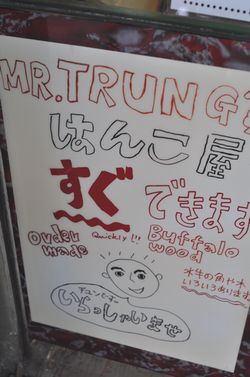 MR.TRUNG'S
はんこ屋
すぐ できます
Quickly!!!
Order made
Buffalo wood
水牛の角や木
いろいろあります
いらっしゃいませ